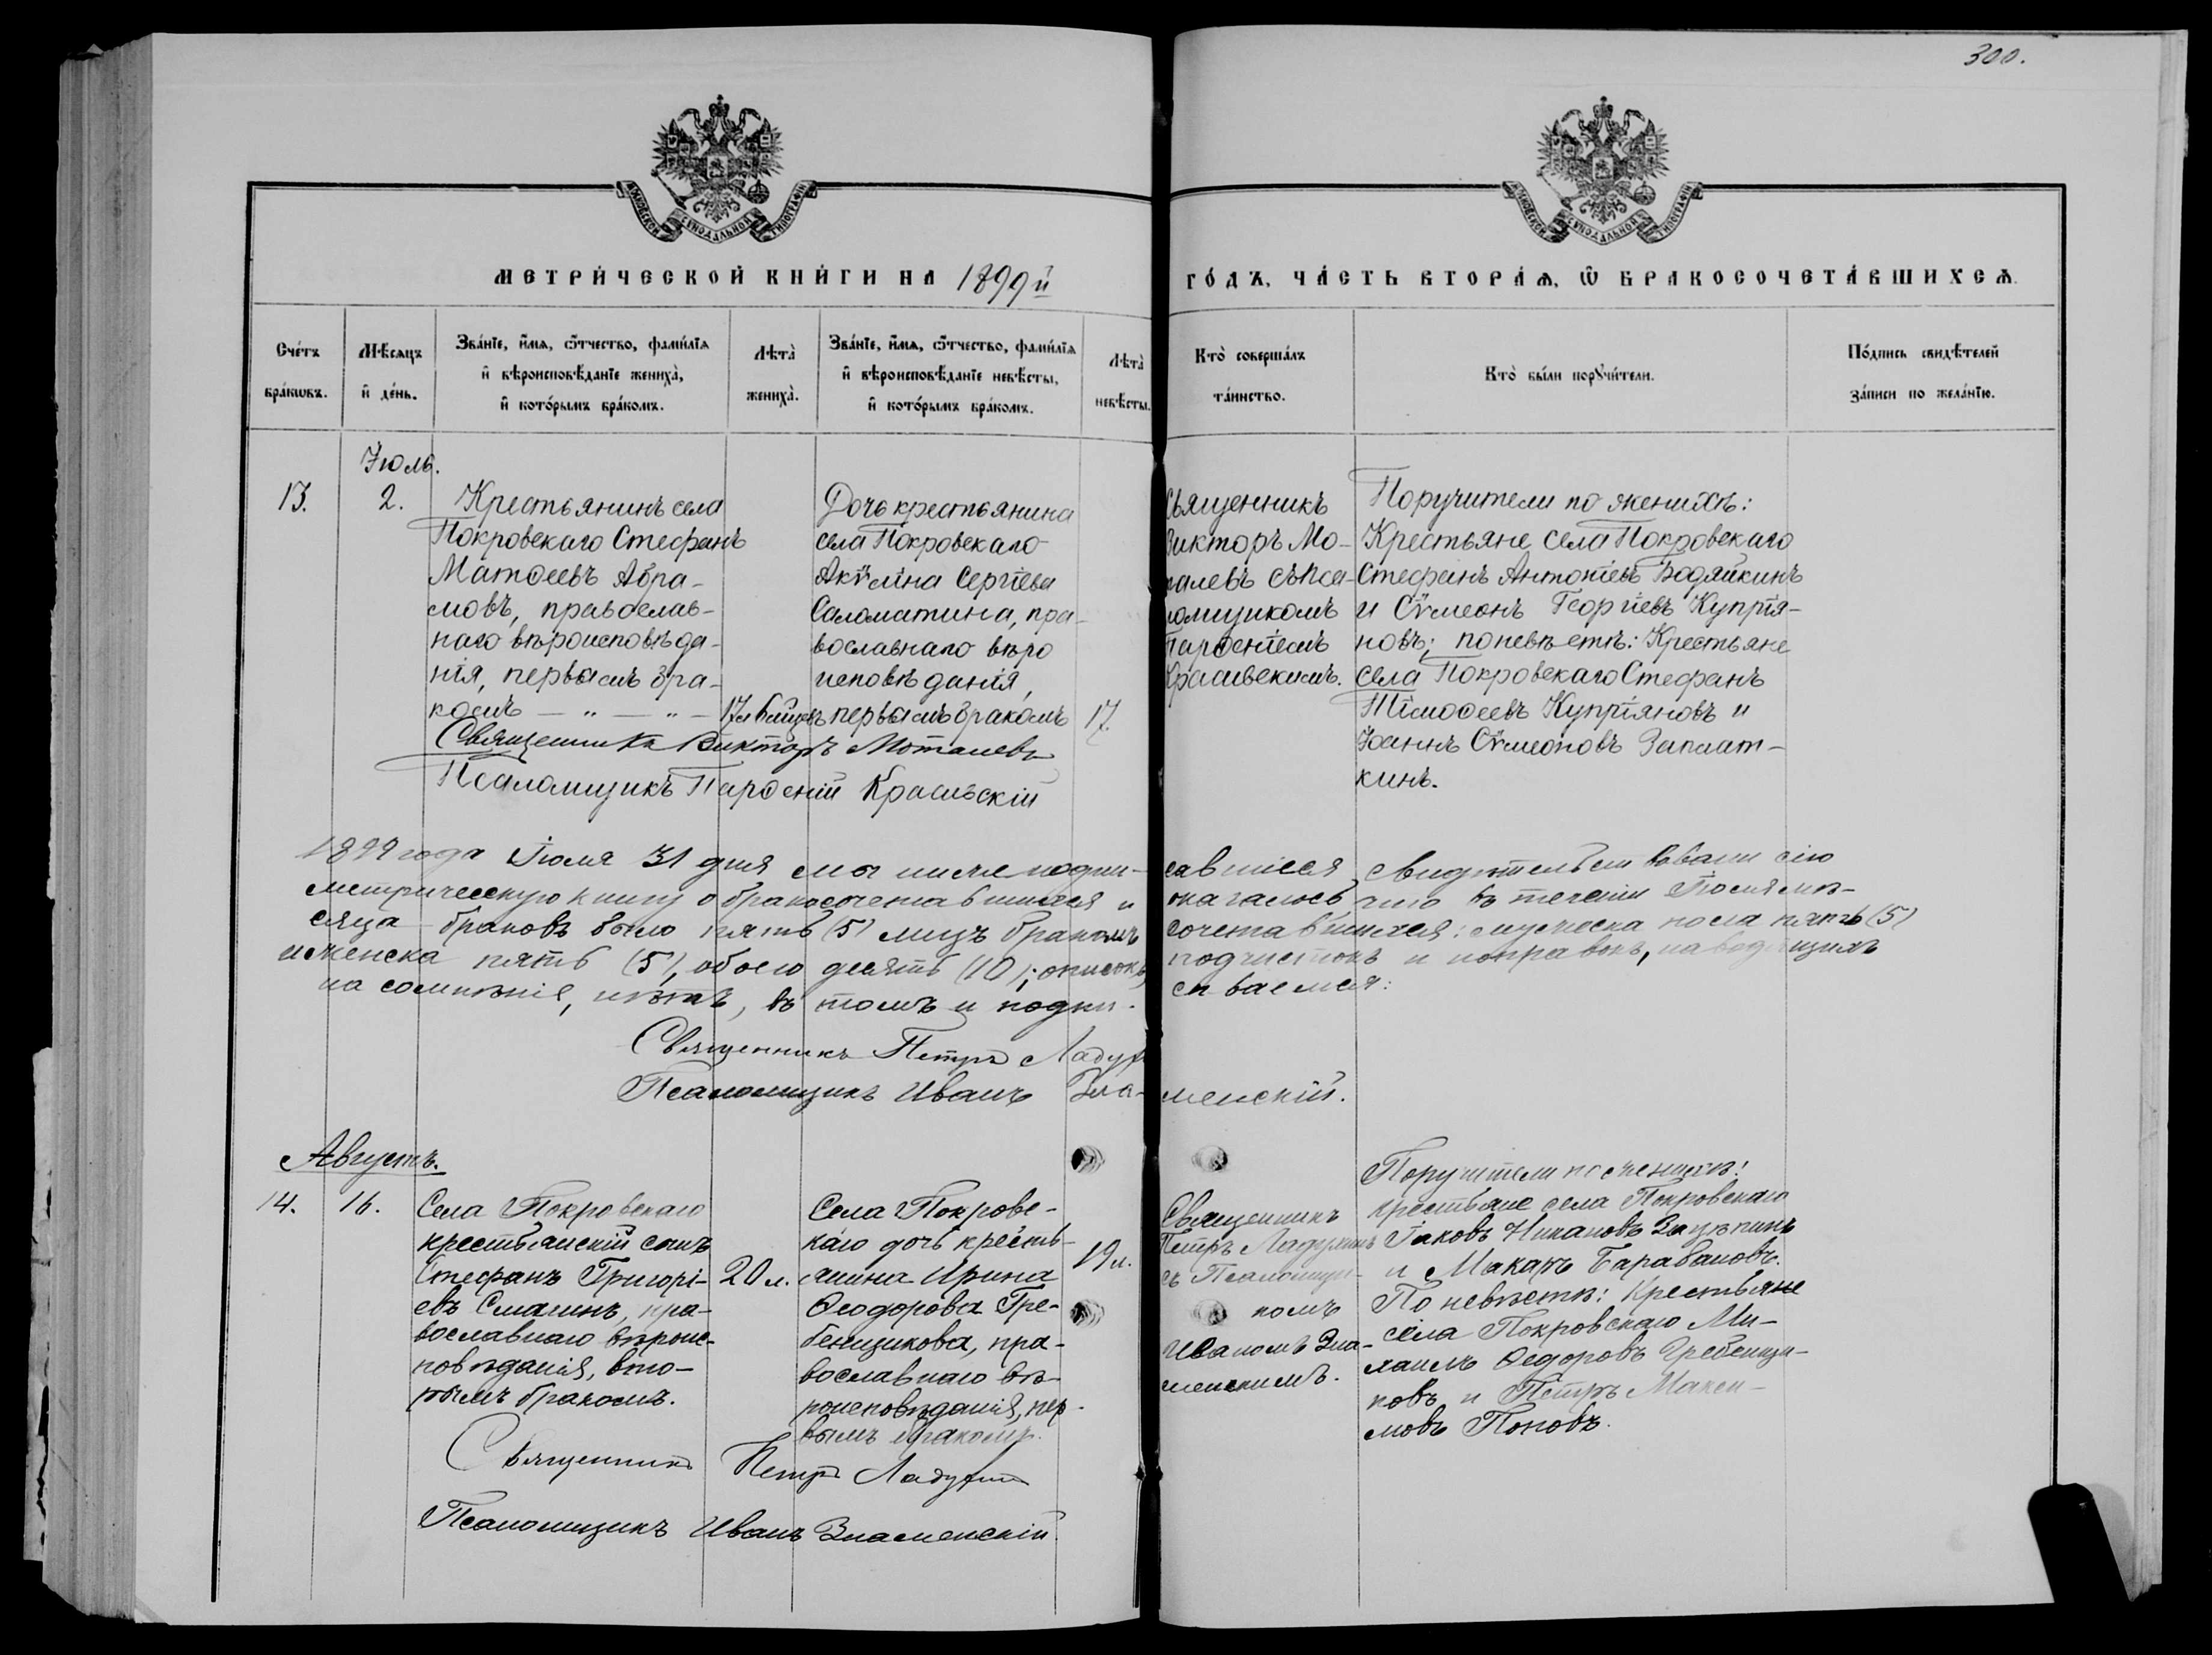 300.
МОСКОВСКОЙ СѴНОДАЛЬНОЙ ТИПОГРАФІИ
МОСКОВСКОЙ СѴНОДАЛЬНОЙ ТИПОГРАФІИ
МЕТРИ́ЧЕСКОЙ КНИ́ГИ НА 1899й
ГО́ДЪ, ЧА́СТЬ ВТОРА́Ѧ, Ѽ БРАКОСОЧЕТА́ВШИХСѦ.
Сче́тъ бра́кѡвъ.
Мѣ́сѧцъ и҆ де́нь.
Зва́нїе, и҆́мѧ, ѻ҆́тчество, фами́лїѧ и҆ вѣроисповѣ́данїе жениха̀, и҆ кото́рымъ бра́комъ.
Лѣта̀ жениха̀.
Зва́нїе, и҆́мѧ, ѻ҆́тчество, фами́лїѧ и҆ вѣроисповѣ́данїе невѣ́сты, и҆ кото́рымъ бра́комъ.
Лѣта̀ невѣ́сты.
Кто̀ соверша́лъ та́инство.
Кто̀ бы́ли порꙋчи́тели.
По́дпись свидѣ́телей за́писи по жела́нїю.
Іюль.
13.
2.
Крестьянинъ села
Покровскаго Стефанъ
Матѳеевъ Абра-
мовъ, православ-
наго вѣроисповѣда-
нія, первымъ бра-
комъ — „ — „ —
Дочь крестьянина
села Покровскаго
Акѵлина Сергіева
Саломатина, пра-
вославнаго вѣро
исповѣданія,
первымъ бракомъ
17.
Священникъ
Викторъ Мо-
талевъ съ Пса-
ломщикомъ
Парѳеніемъ
Красивскимъ.
Поручители по женихѣ:
Крестьяне села Покровскаго
Стефанъ Антоніевъ Бодяйкинъ
и Сѵмеонъ Георгіевъ Купрія-
новъ; по невѣстѣ: Крестьяне
села Покровскаго Стефанъ
Тімоѳеевъ Купріяновъ и
Іоаннъ Сѵмеоновъ Заплат-
кинъ.
Священникъ Викторъ Моталевъ
Псаломщикъ Парѳеній Красивскій
1899 года Іюля 31 дня мы нижеподпи-савшіеся свидѣтельствовали сію
метрическую книгу о бракосочетавшихся и оказалось, что въ теченіи Іюля мѣ-
сяца браковъ было пять (5) лицъ бракомъ сочетавшихся: мужеска пола пять (5)
и женска пять (5), обоего десять (10); описокъ, подчистокъ и поправокъ, наводящихъ
на сомнѣнія, нѣтъ, въ томъ и подпи-сываемся:
Священникъ Петръ Ладух
Псаломщикъ Иванъ Зна-менскій.
Августъ.
14.
16.
Села Покровскаго
крестьянскій сынъ
Стефанъ Григорі-
евъ Смагинъ, пра-
вославнаго вѣроис-
повѣданія, вто-
рымъ бракомъ.
20 л.
Села Покровс-
каго дочь кресть-
янина Ирина
Ѳеодорова Гре-
бенщикова, пра-
вославнаго вѣ-
роисповѣданія, пер-
вымъ бракомъ.
19 л.
Священникъ
Петръ Ладухинъ
съ Псаломщи-
комъ
Иваномъ Зна-
менскимъ.
Поручители по женихѣ:
крестьяне села Покровскаго
Іаковъ
и Макаръ Барабановъ.
По невѣстѣ: Крестьяне
села Покровскаго Ми-
хаилъ Ѳедоровъ Гребенщи-
ковъ и Петръ Макси-
мовъ Поповъ.
Священникъ Петръ Ладухинъ
Псаломщикъ Иванъ Знаменскій.